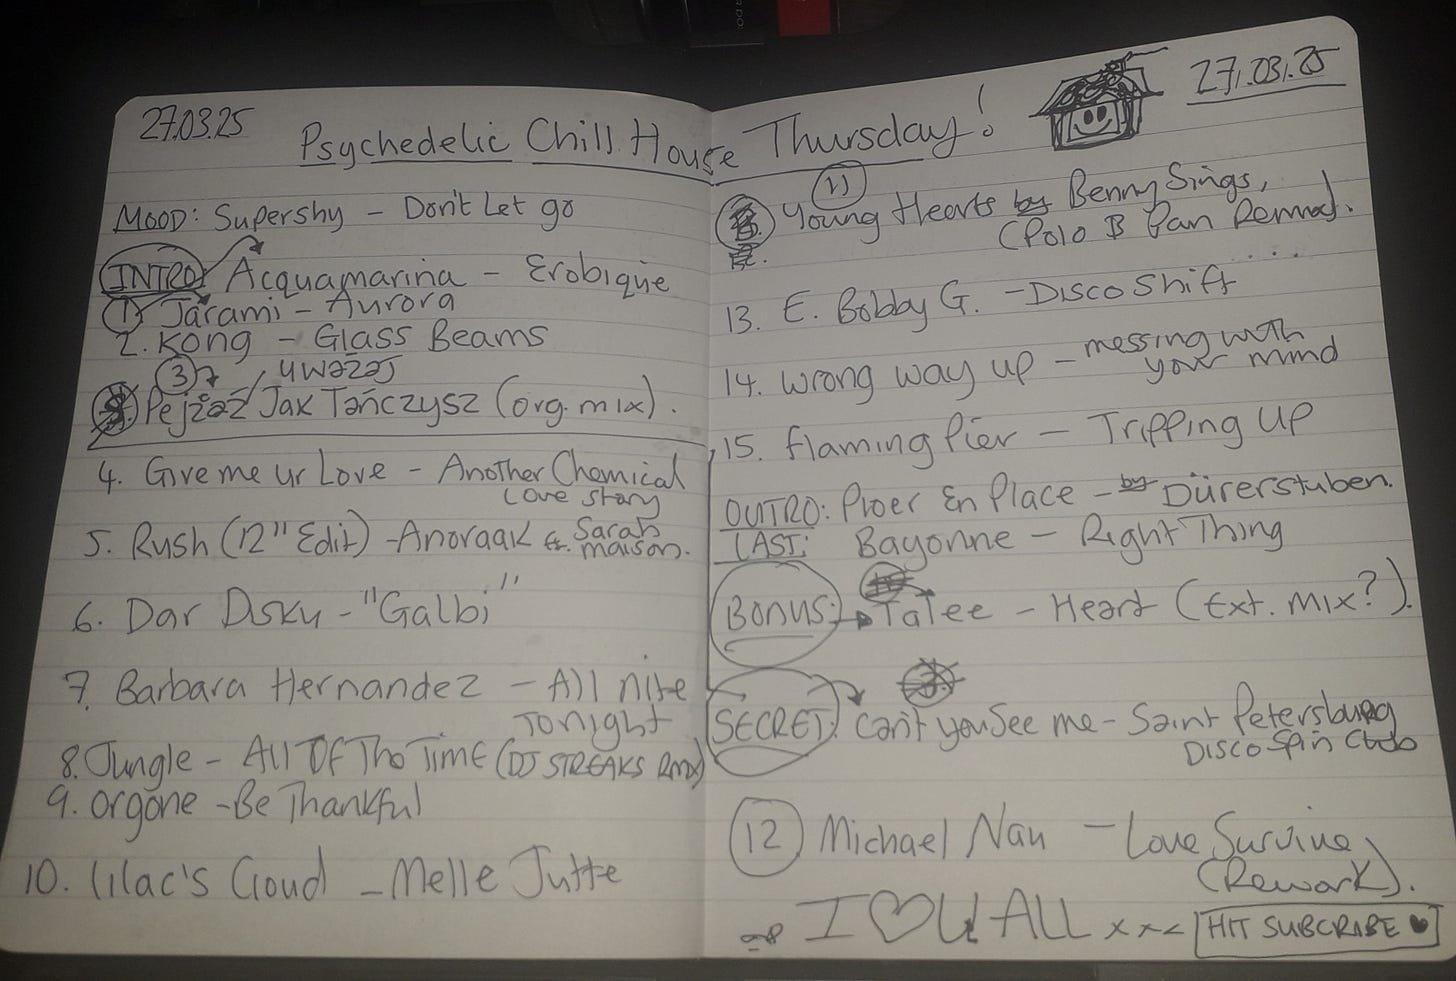 27.03.25
Psychedelic Chill House Thursday!
27.03.25
MOOD: Supershy - Don't Let go
INTRO: Acquamarina - Erobique
1) Jarami - Aurora
2. Kong - Glass Beams
3 uważaj
Pejzaż / Jak Tańczysz (org. mix).
4. Give me ur Love - Another Chemical
Love story
5. Rush (12" Edit) - Anoraak & Sarah
maison.
6. Dar Disku - "Galbi"
7. Barbara Hernandez - All nite
Tonight
8. Jungle - All Of The Time (DJ STREAKS RMX)
9. Orgone - Be Thankful
10. Lilac's Cloud - Melle Jutte
11)
Young Hearts by Benny Sings,
(Polo & Pan Remix).
13. E. Bobby G. - Disco Shift
14. Wrong way up - messing with
your mind
15. Flaming Pier - Tripping Up
OUTRO: Ploer En Place - by Dürerstuben.
LAST: Bayonne - Right Thing
BONUS: Talee - Heart (Ext. Mix?).
SECRET: Can't you see me - Saint Petersburg
Disco Spin Club
12 Michael Nau - Love Survive
(Rework).
I ♡ U ALL x x x HIT SUBCRIBE ♥